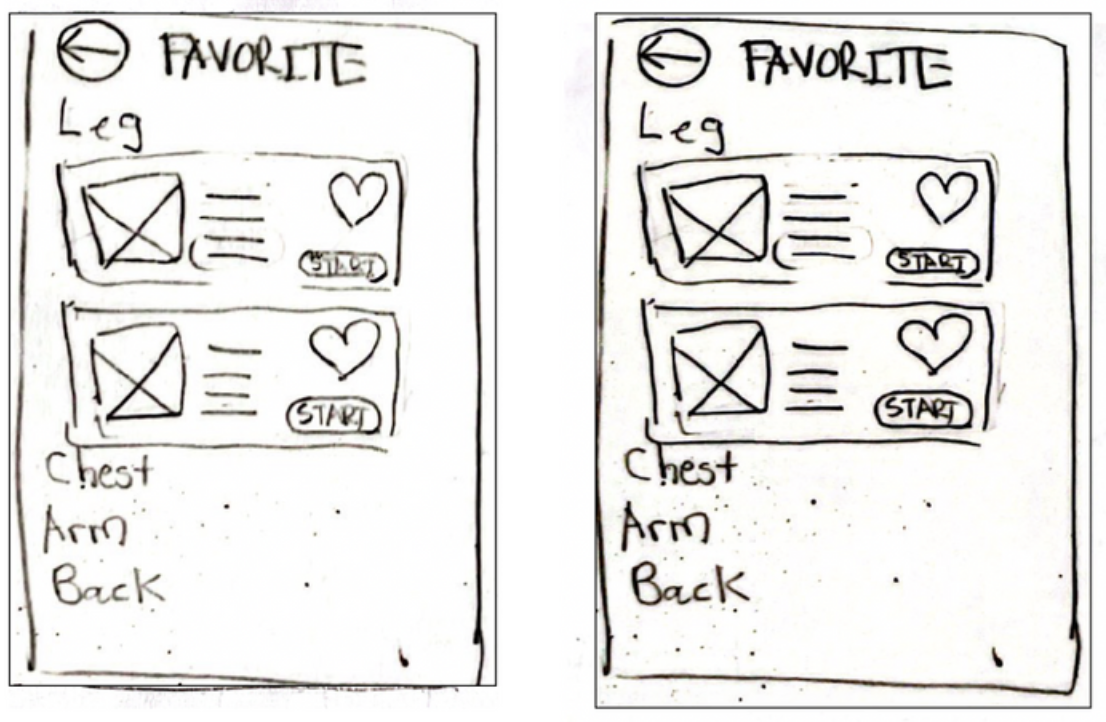 FAVORITE
Leg
START
START
Chest
Arm
Back
FAVORITE
Leg
START
START
Chest
Arm
Back